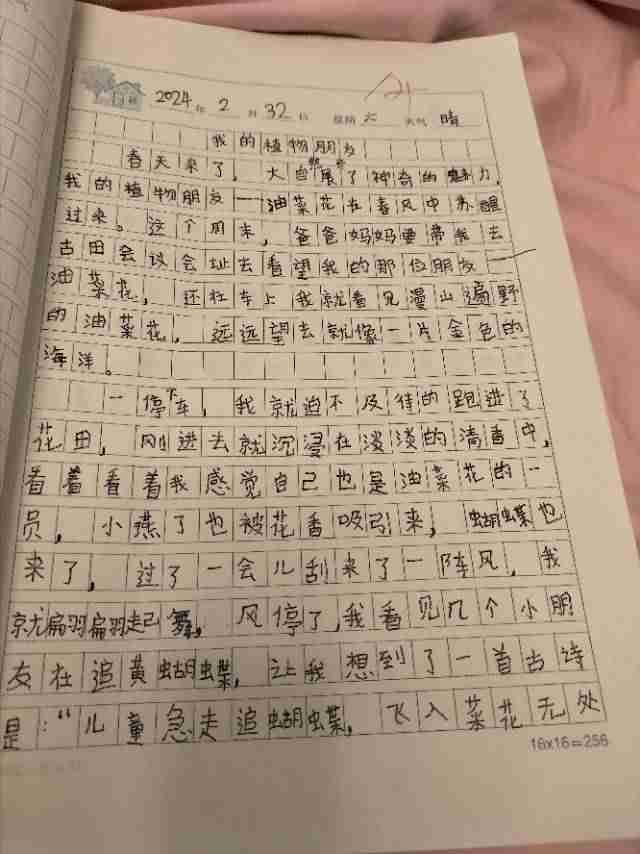 2024年2月32日 星期六 天气 晴
我的植物朋友
春天来了，大自然展示了神奇的魅力，
我的植物朋友——油菜花在春风中苏醒
过来。这个周末，爸爸妈妈要带我去
古田会议会址去看望我的那位朋友——
油菜花，还在车上我就看见漫山遍野
的油菜花，远远望去就像一片金色的
海洋。
一停下车，我就迫不及待的跑进了
花田，刚进去就沉浸在淡淡的清香中，
看着看着我感觉自己也是油菜花的一
员，小燕了也被花香吸引来，蝴蝶也
来了，过了一会儿刮来了一阵风，我
就翩翩起舞，风停了，我看见几个小朋
友在追黄蝴蝶，让我想到了一首古诗
是：“儿童急走追蝴蝶，飞入菜花无处
16×16=256